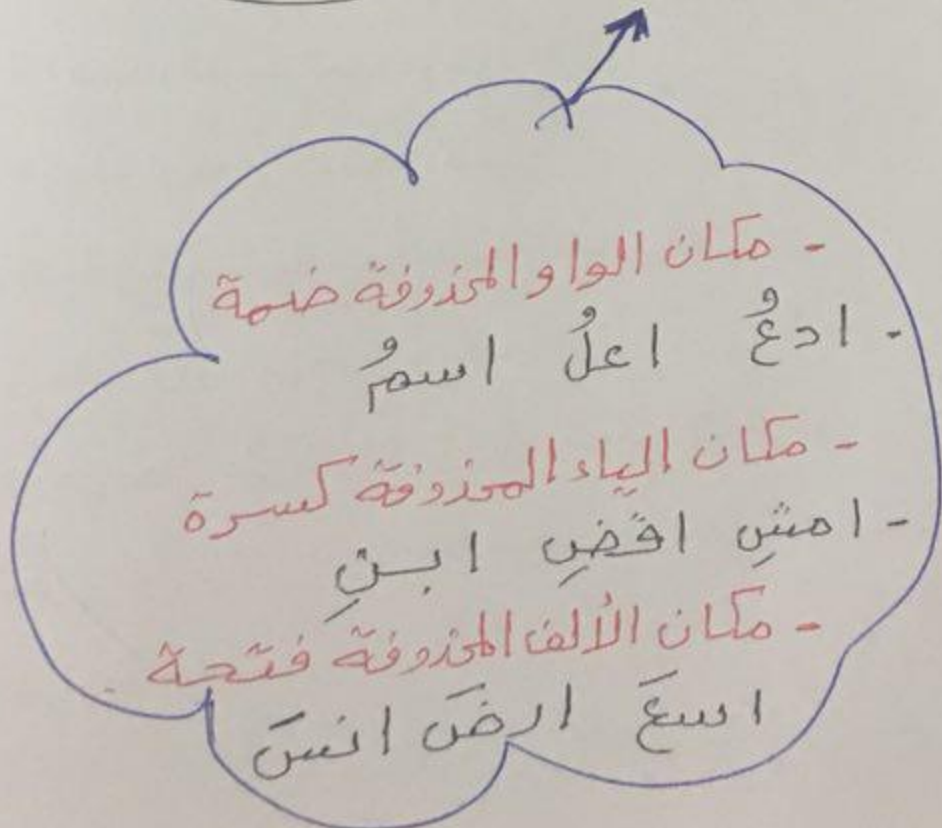 - مكان الواو المحذوفة ضمة
- ادعُ اعلُ اسمُ
- مكان الياء المحذوفة كسرة
- امشِ اقضِ ابنِ
- مكان الألف المحذوفة فتحة
اسعَ ارضَ انسَ